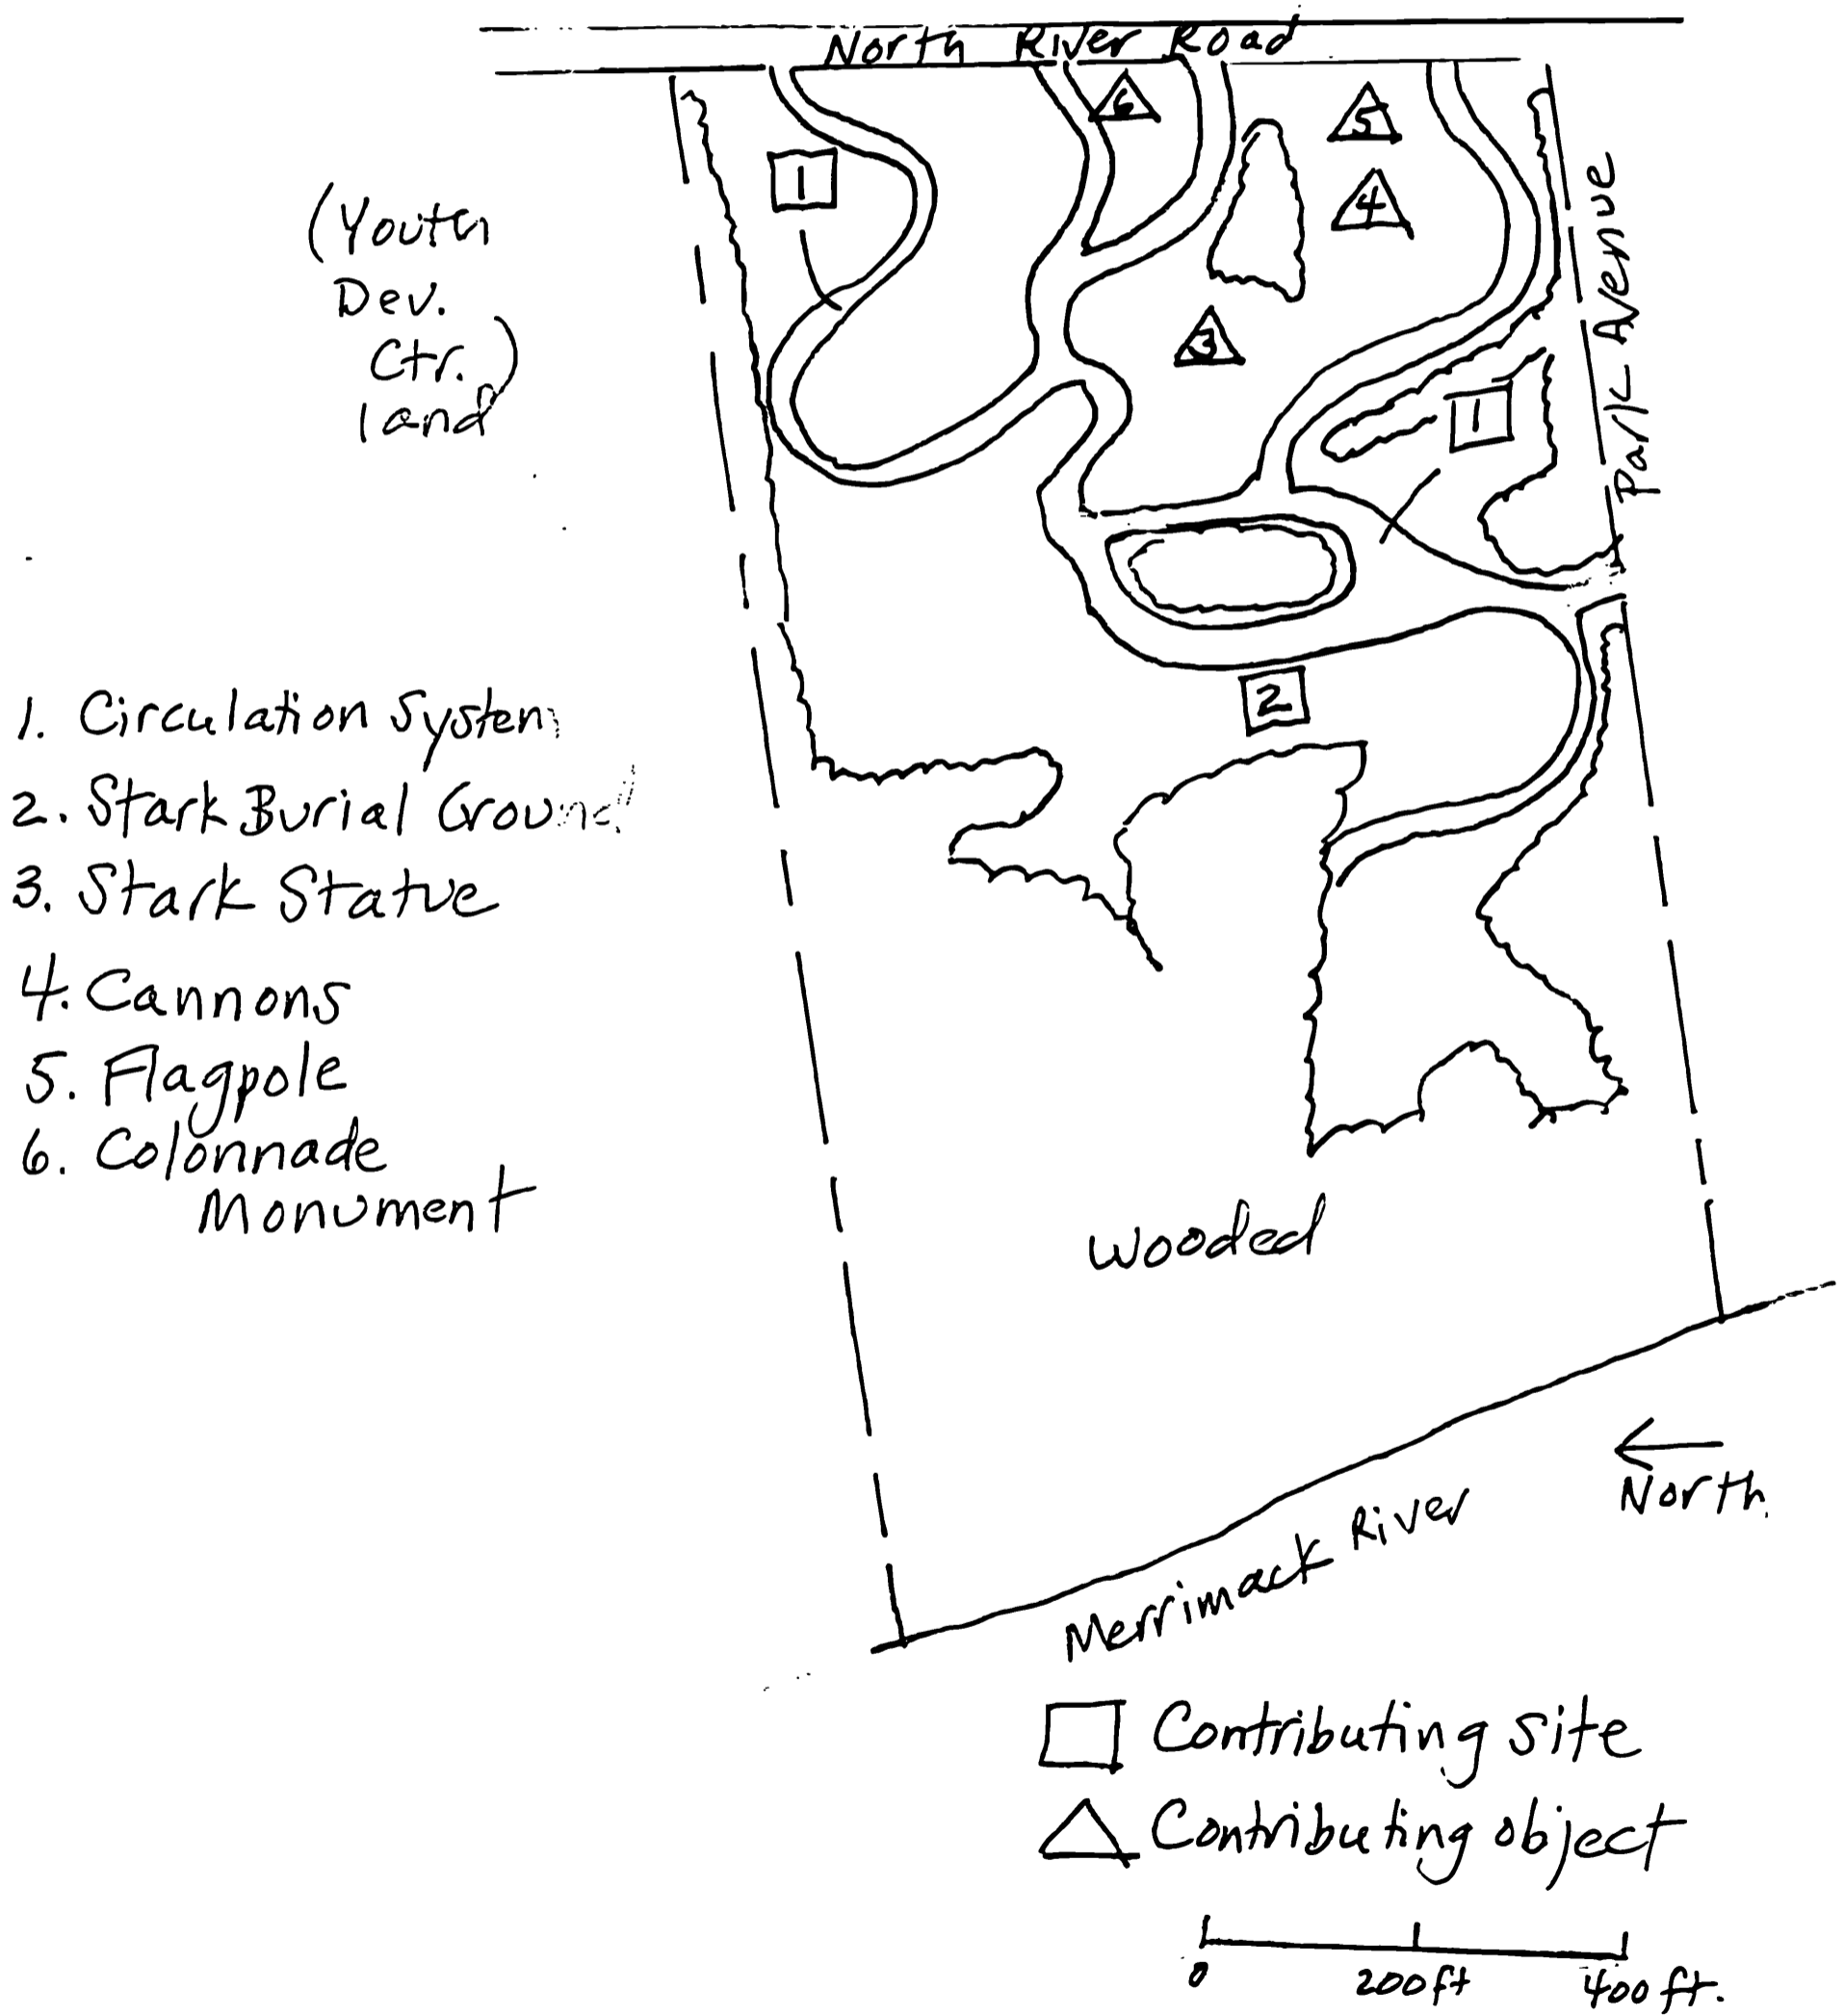 North River Road
6
5
1
4
(Youth
Dev.
Ctr.
land)
Park Avenue
3
1
2
1. Circulation System
2. Stark Burial Ground
3. Stark Statue
4. Cannons
5. Flagpole
6. Colonnade
Monument
Wooded
North
Merrimack River
Contributing Site
Contributing object
0 200ft 400ft.